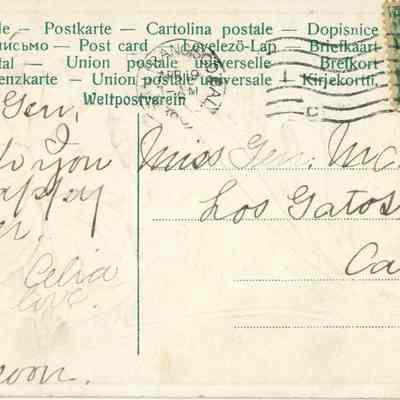 le — Postkarte — Cartolina postale — Dopisnice
письмо — Post card — Levelező-Lap — Briefkaart
tal — Union postale universelle — Brefkort
enzkarte — Union postale universale — Kirjekortti.
Weltpostverein
SAN FRANCISCO, CAL
APR 10
Gen,
o you
appy
er.
Celia
love.
oon.
Miss Gen. McC
Los Gatos
Ca